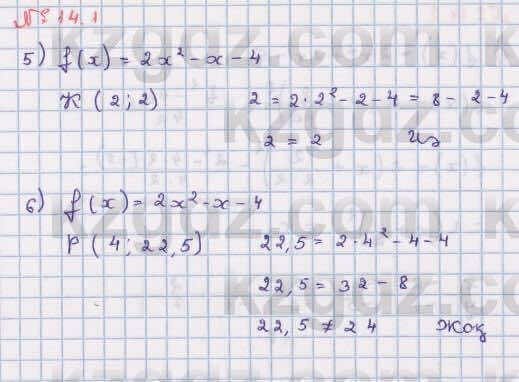 № 14.1
5) f(x) = 2x² - x - 4
K (2; 2) 2 = 2·2² - 2 - 4 = 8 - 2 - 4
2 = 2 Иә
6) f(x) = 2x² - x - 4
P (4; 22,5) 22,5 = 2·4² - 4 - 4
22,5 = 32 - 8
22,5 ≠ 24 Жоқ
kzgdz.com